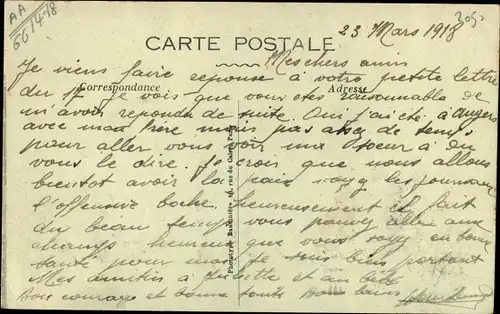 AA
661418
305
23 Mars 1918
CARTE POSTALE
Mes chers amis
Je viens faire reponse à votre petite lettre
Correspondance
Adresse
du 17 Je vois que vous etes raisonnable de
m'avoir repondu de suite. Oui j'ai été à Angers
avec mon frère mais pas assez de temps
pour aller vous voir ma soeur a du
vous le dire. Je crois que nous allons
bientot avoir la paix voyez les journaux
l'offensive boche. heureusement il fait
du beau temps vous pouvez aller aux
champs heureux que vous soyez en bonne
santé pour moi je suis bien portant
Mes amitiés à Juliette et au bébé
Bon courage et bonne santé
Phototype Baudinière, rue du Caire, Paris